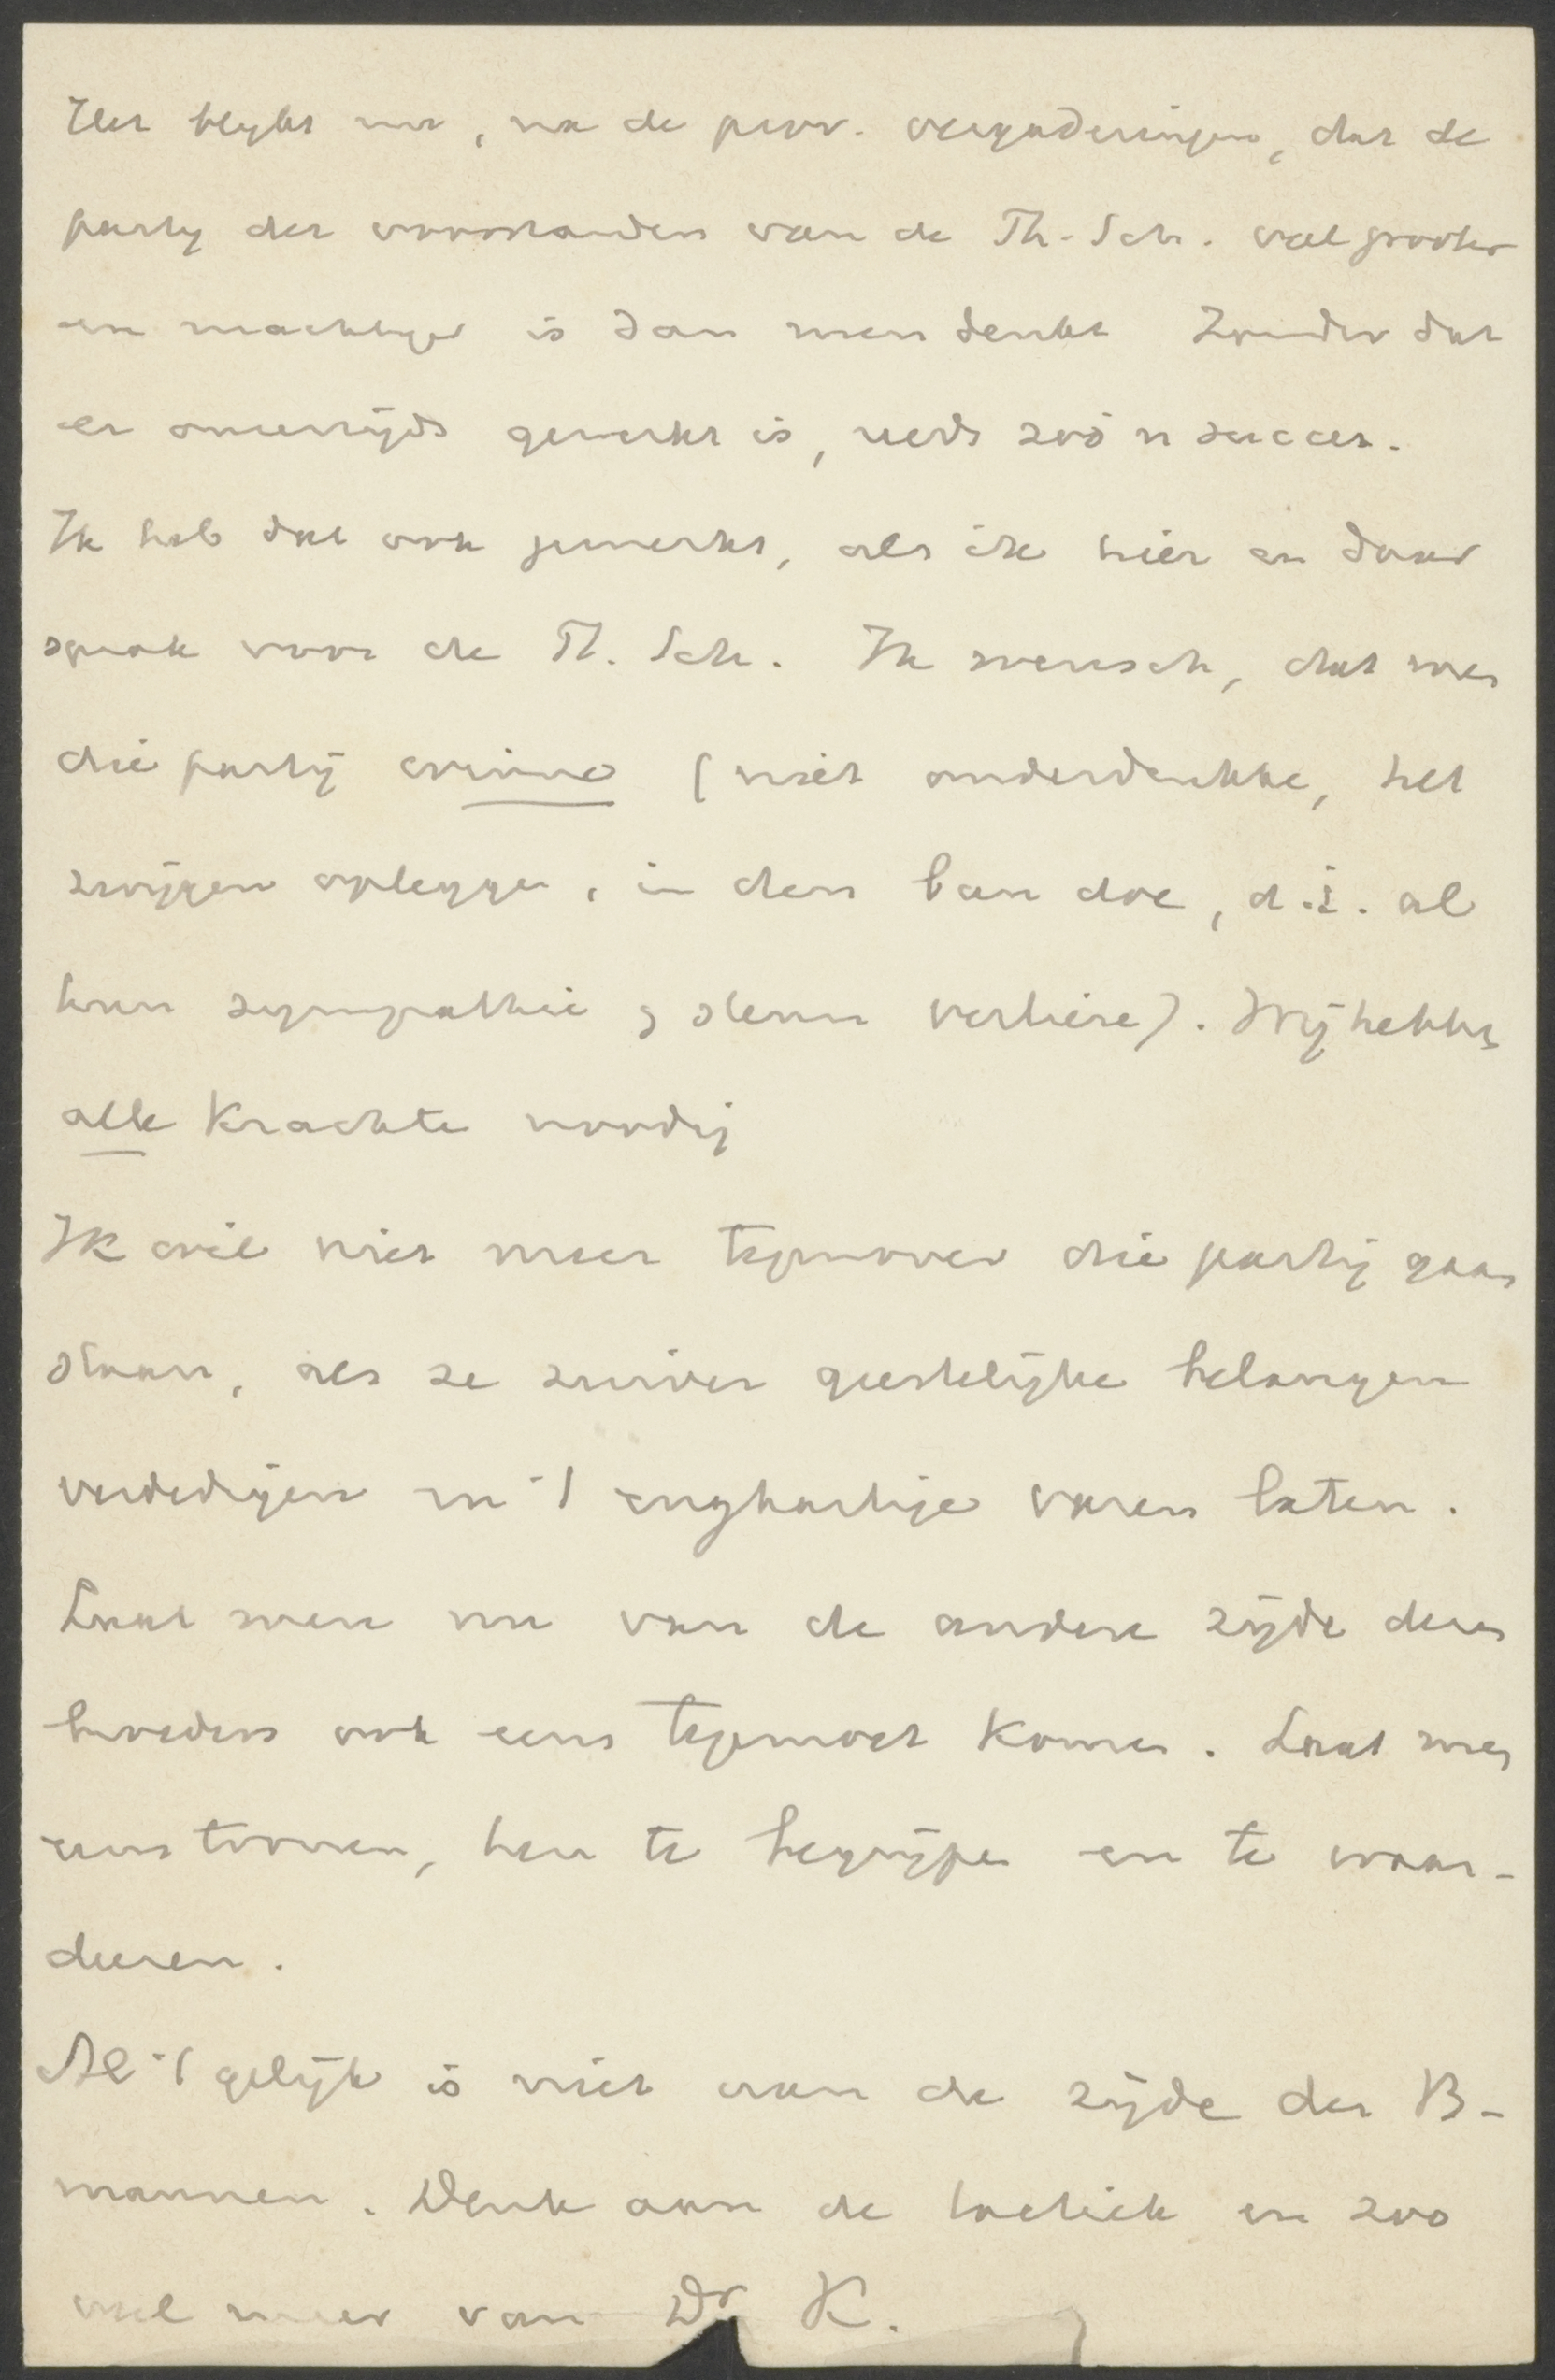 Het blykt nu, na de prov. vergaderingen, dat de
party der voorstanders van de Th. Sch. veel grooter
en machtiger is dan men denkt Zonder dat
er onzerzijds gewerkt is, reeds zoo'n succes.
Ik heb dat ook gemerkt, als ik hier en daar
sprak voor de Th. Sch. Ik wensch, dat men
die partij winne (niet onderdrukke, het
zwijgen oplegge, in den ban doe, d.i. al
hun sympathie & steun verlieze). Wij hebben
alle krachten noodig
Ik wil niet meer tegenover die partij gaan
staan, als ze zuiver geestelijke belangen
verdedigen en 't enghartige varen laten.
Laat men nu van de andere zijde deze
broeders ook eens tegemoet komen. Laat men
eens toonen, hen te begrijpen en te waar-
deeren.
Al 't gelijk is niet aan de zijde der B-
mannen. Denk aan de tactiek en zoo
veel meer van Dr K.